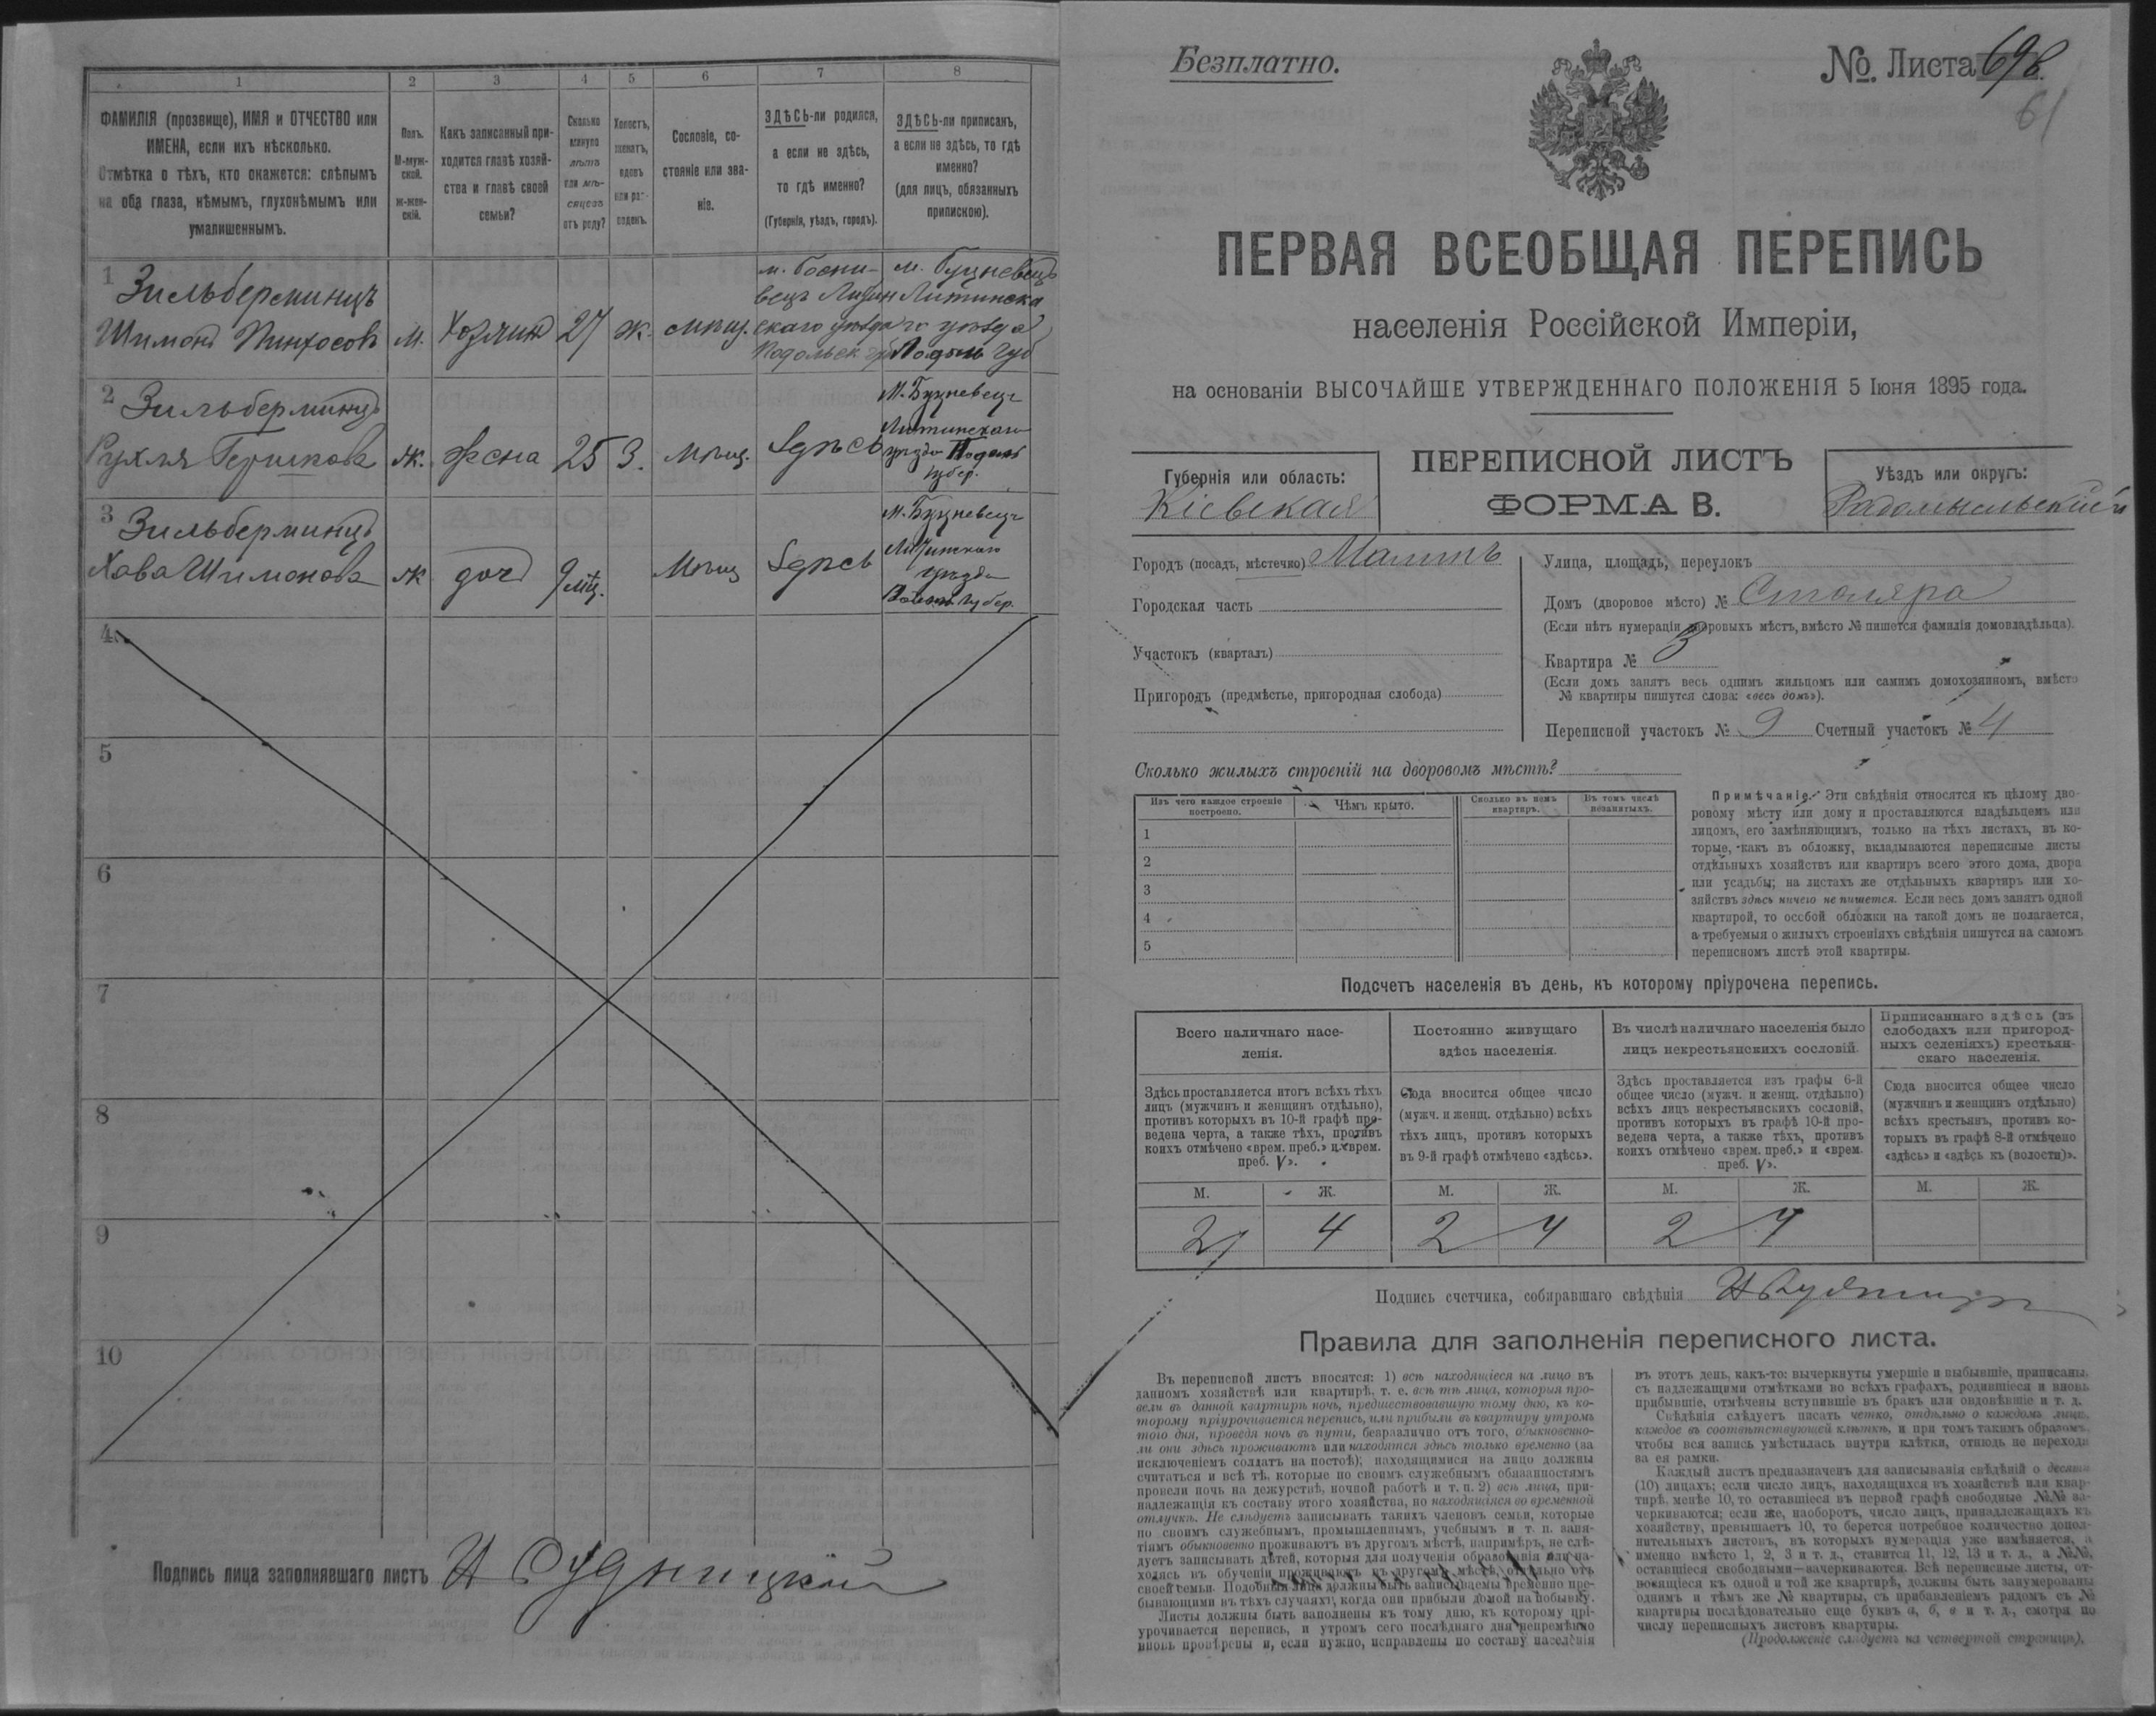 1
2
3
4
5
6
7
8
ФАМИЛІЯ (прозвище), ИМЯ и ОТЧЕСТВО или
ИМЕНА, если ихъ нѣсколько.
Отмѣтка о тѣхъ, кто окажется: слѣпымъ
на оба глаза, нѣмымъ, глухонѣмымъ или
умалишеннымъ.
Полъ.
М-муж-
ской.
Ж-жен-
скій.
Какъ записанный при-
ходится главѣ хозяй-
ства и главѣ своей
семьи?
Сколько
минуло
лѣтъ
или мѣ-
сяцевъ
отъ роду?
Холостъ,
женатъ,
вдовъ
или раз-
веденъ.
Сословіе, со-
стояніе или зва-
ніе.
ЗДѢСЬ-ли родился,
а если не здѣсь,
то гдѣ именно?
(Губернія, уѣздъ, городъ).
ЗДѢСЬ-ли приписанъ,
а если не здѣсь, то гдѣ
именно?
(для лицъ, обязанныхъ
припискою).
1
Зильберминцъ
Шимонъ Пинхосовъ
м.
Хозяинъ
27
ж.
мѣщ.
скаго уѣзда
Подольск губ
м. Буцневецъ
Литинска
го уѣзда
Подоль губ
2
Зильберминцъ
Рухля Гершкова
ж.
жена
25
З.
мѣщ.
Здѣсь
м. Буцневецъ
Литинскаго
уѣзда Подоль
губер.
3
Зильберминцъ
Хава Шимонова
ж
дочь
9 мѣц.
мѣщ
Здѣсь
м. Буцневецъ
Литинскаго
уѣзда
губер.
4
5
6
7
8
9
10
Подпись лица заполнявшаго листъ
Безплатно.
№ Листа 698.
61
ПЕРВАЯ ВСЕОБЩАЯ ПЕРЕПИСЬ
населенія Россійской Имперіи,
на основаніи ВЫСОЧАЙШЕ УТВЕРЖДЕННАГО ПОЛОЖЕНІЯ 5 Іюня 1895 года.
Губернія или область:
Кіевская
ПЕРЕПИСНОЙ ЛИСТЪ
ФОРМА В.
Уѣздъ или округъ:
Радомысльскій
Городъ (посадъ, мѣстечко) Малинъ
Городская часть
Участокъ (кварталъ)
Пригородъ (предмѣстье, пригородная слобода)
Улица, площадь, переулокъ
Домъ (дворовое мѣсто) № Столяра
(Если нѣтъ нумераціи дворовыхъ мѣстъ, вмѣсто № пишется фамилія домовладѣльца).
Квартира № 3
(Если домъ занятъ весь однимъ жильцомъ или самимъ домохозяиномъ, вмѣсто
№ квартиры пишутся слова: «весь домъ»).
Переписной участокъ № 9 Счетный участокъ № 4
Сколько жилыхъ строеній на дворовомъ мѣстѣ?
Изъ чего каждое строеніе
построено.
Чѣмъ крыто.
Сколько въ немъ
квартиръ.
Въ томъ числѣ
незанятыхъ.
1
2
3
4
5
Примѣчаніе. Эти свѣдѣнія относятся къ цѣлому дво-
ровому мѣсту или дому и проставляются владѣльцемъ или
лицомъ, его замѣняющимъ, только на тѣхъ листахъ, въ ко-
торые, какъ въ обложку, вкладываются переписные листы
отдѣльныхъ хозяйствъ или квартиръ всего этого дома, двора
или усадьбы; на листахъ же отдѣльныхъ квартиръ или хо-
зяйствъ здѣсь ничего не пишется. Если весь домъ занятъ одной
квартирой, то особой обложки на такой домъ не полагается,
а требуемыя о жилыхъ строеніяхъ свѣдѣнія пишутся на самомъ
переписномъ листѣ этой квартиры.
Подсчетъ населенія въ день, къ которому пріурочена перепись.
Всего наличнаго насе-
ленія.
Постоянно живущаго
здѣсь населенія.
Въ числѣ наличнаго населенія было
лицъ некрестьянскихъ сословій.
Приписаннаго здѣсь (въ
слободахъ или пригород-
ныхъ селеніяхъ) крестьян-
скаго населенія.
Здѣсь проставляется итогъ всѣхъ тѣхъ
лицъ (мужчинъ и женщинъ отдѣльно),
противъ которыхъ въ 10-й графѣ про-
ведена черта, а также тѣхъ, противъ
коихъ отмѣчено «врем. преб.» и «врем.
преб. V».
Сюда вносится общее число
(мужч. и женщ. отдѣльно) всѣхъ
тѣхъ лицъ, противъ которыхъ
въ 9-й графѣ отмѣчено «здѣсь».
Здѣсь проставляется изъ графы 6-й
общее число (мужч. и женщ. отдѣльно)
всѣхъ лицъ некрестьянскихъ сословій,
противъ которыхъ въ графѣ 10-й про-
ведена черта, а также тѣхъ, противъ
коихъ отмѣчено «врем. преб.» и «врем.
преб. V».
Сюда вносится общее число
(мужчинъ и женщинъ отдѣльно)
всѣхъ крестьянъ, противъ ко-
торыхъ въ графѣ 8-й отмѣчено
«здѣсь» и «здѣсь къ (волости)».
М. Ж. М. Ж. М. Ж. М. Ж.
2 4 2 4 2 4
Подпись счетчика, собиравшаго свѣдѣнія
Правила для заполненія переписного листа.
Въ переписной листъ вносятся: 1) всѣ находящіеся на лицо въ
данномъ хозяйствѣ или квартирѣ, т. е. всѣ тѣ лица, которыя про-
вели въ данной квартирѣ ночь, предшествовавшую тому дню, къ ко-
торому пріурочивается перепись, или прибыли въ квартиру утромъ
того дня, проведя ночь въ пути, безразлично отъ того, обыкновенно-
ли они здѣсь проживаютъ или находятся здѣсь только временно (за
исключеніемъ солдатъ на постоѣ); находящимися на лицо должны
считаться и всѣ тѣ, которые по своимъ служебнымъ обязанностямъ
провели ночь на дежурствѣ, ночной работѣ и т. п. 2) всѣ лица, при-
надлежащія къ составу этого хозяйства, но находящіяся во временной
отлучкѣ. Не слѣдуетъ записывать такихъ членовъ семьи, которые
по своимъ служебнымъ, промышленнымъ, учебнымъ и т. п. заня-
тіямъ обыкновенно проживаютъ въ другомъ мѣстѣ, напримѣръ, не слѣ-
дуетъ записывать дѣтей, которыя для полученія образованія или на-
ходясь въ обученіи проживаютъ въ другомъ мѣстѣ, отдѣльно отъ
своей семьи. Подобныя лица должны быть записываемы временно пре-
бывающими въ тѣхъ случаяхъ, когда они прибыли домой на побывку.
Листы должны быть заполнены къ тому дню, къ которому прі-
урочивается перепись, и утромъ сего послѣдняго дня непремѣнно
вновь провѣрены и, если нужно, исправлены по составу населенія
въ этотъ день, какъ-то: вычеркнуты умершіе и выбывшіе, приписаны,
съ надлежащими отмѣтками во всѣхъ графахъ, родившіеся и вновь
прибывшіе, отмѣчены вступившіе въ бракъ или овдовѣвшіе и т. д.
Свѣдѣнія слѣдуетъ писать четко, отдѣльно о каждомъ лицѣ,
каждое въ соотвѣтствующей клѣткѣ, и при томъ такимъ образомъ,
чтобы вся запись умѣстилась внутри клѣтки, отнюдь не переходя
за ея рамки.
Каждый листъ предназначенъ для записыванія свѣдѣній о десяти
(10) лицахъ; если число лицъ, находящихся въ хозяйствѣ или квар-
тирѣ, менѣе 10, то оставшіеся въ первой графѣ свободные №№ за-
черкиваются; если же, наоборотъ, число лицъ, принадлежащихъ къ
хозяйству, превышаетъ 10, то берется потребное количество допол-
нительныхъ листовъ, въ которыхъ нумерація уже измѣняется, а
именно вмѣсто 1, 2, 3 и т. д., ставится 11, 12, 13 и т. д., а №№,
оставшіеся свободными—зачеркиваются. Всѣ переписные листы, от-
носящіеся къ одной и той же квартирѣ, должны быть занумерованы
однимъ и тѣмъ же № квартиры, съ прибавленіемъ рядомъ съ №
квартиры послѣдовательно еще буквъ а, б, в и т. д., смотря по
числу переписныхъ листовъ квартиры.
(Продолженіе слѣдуетъ на четвертой страницѣ).